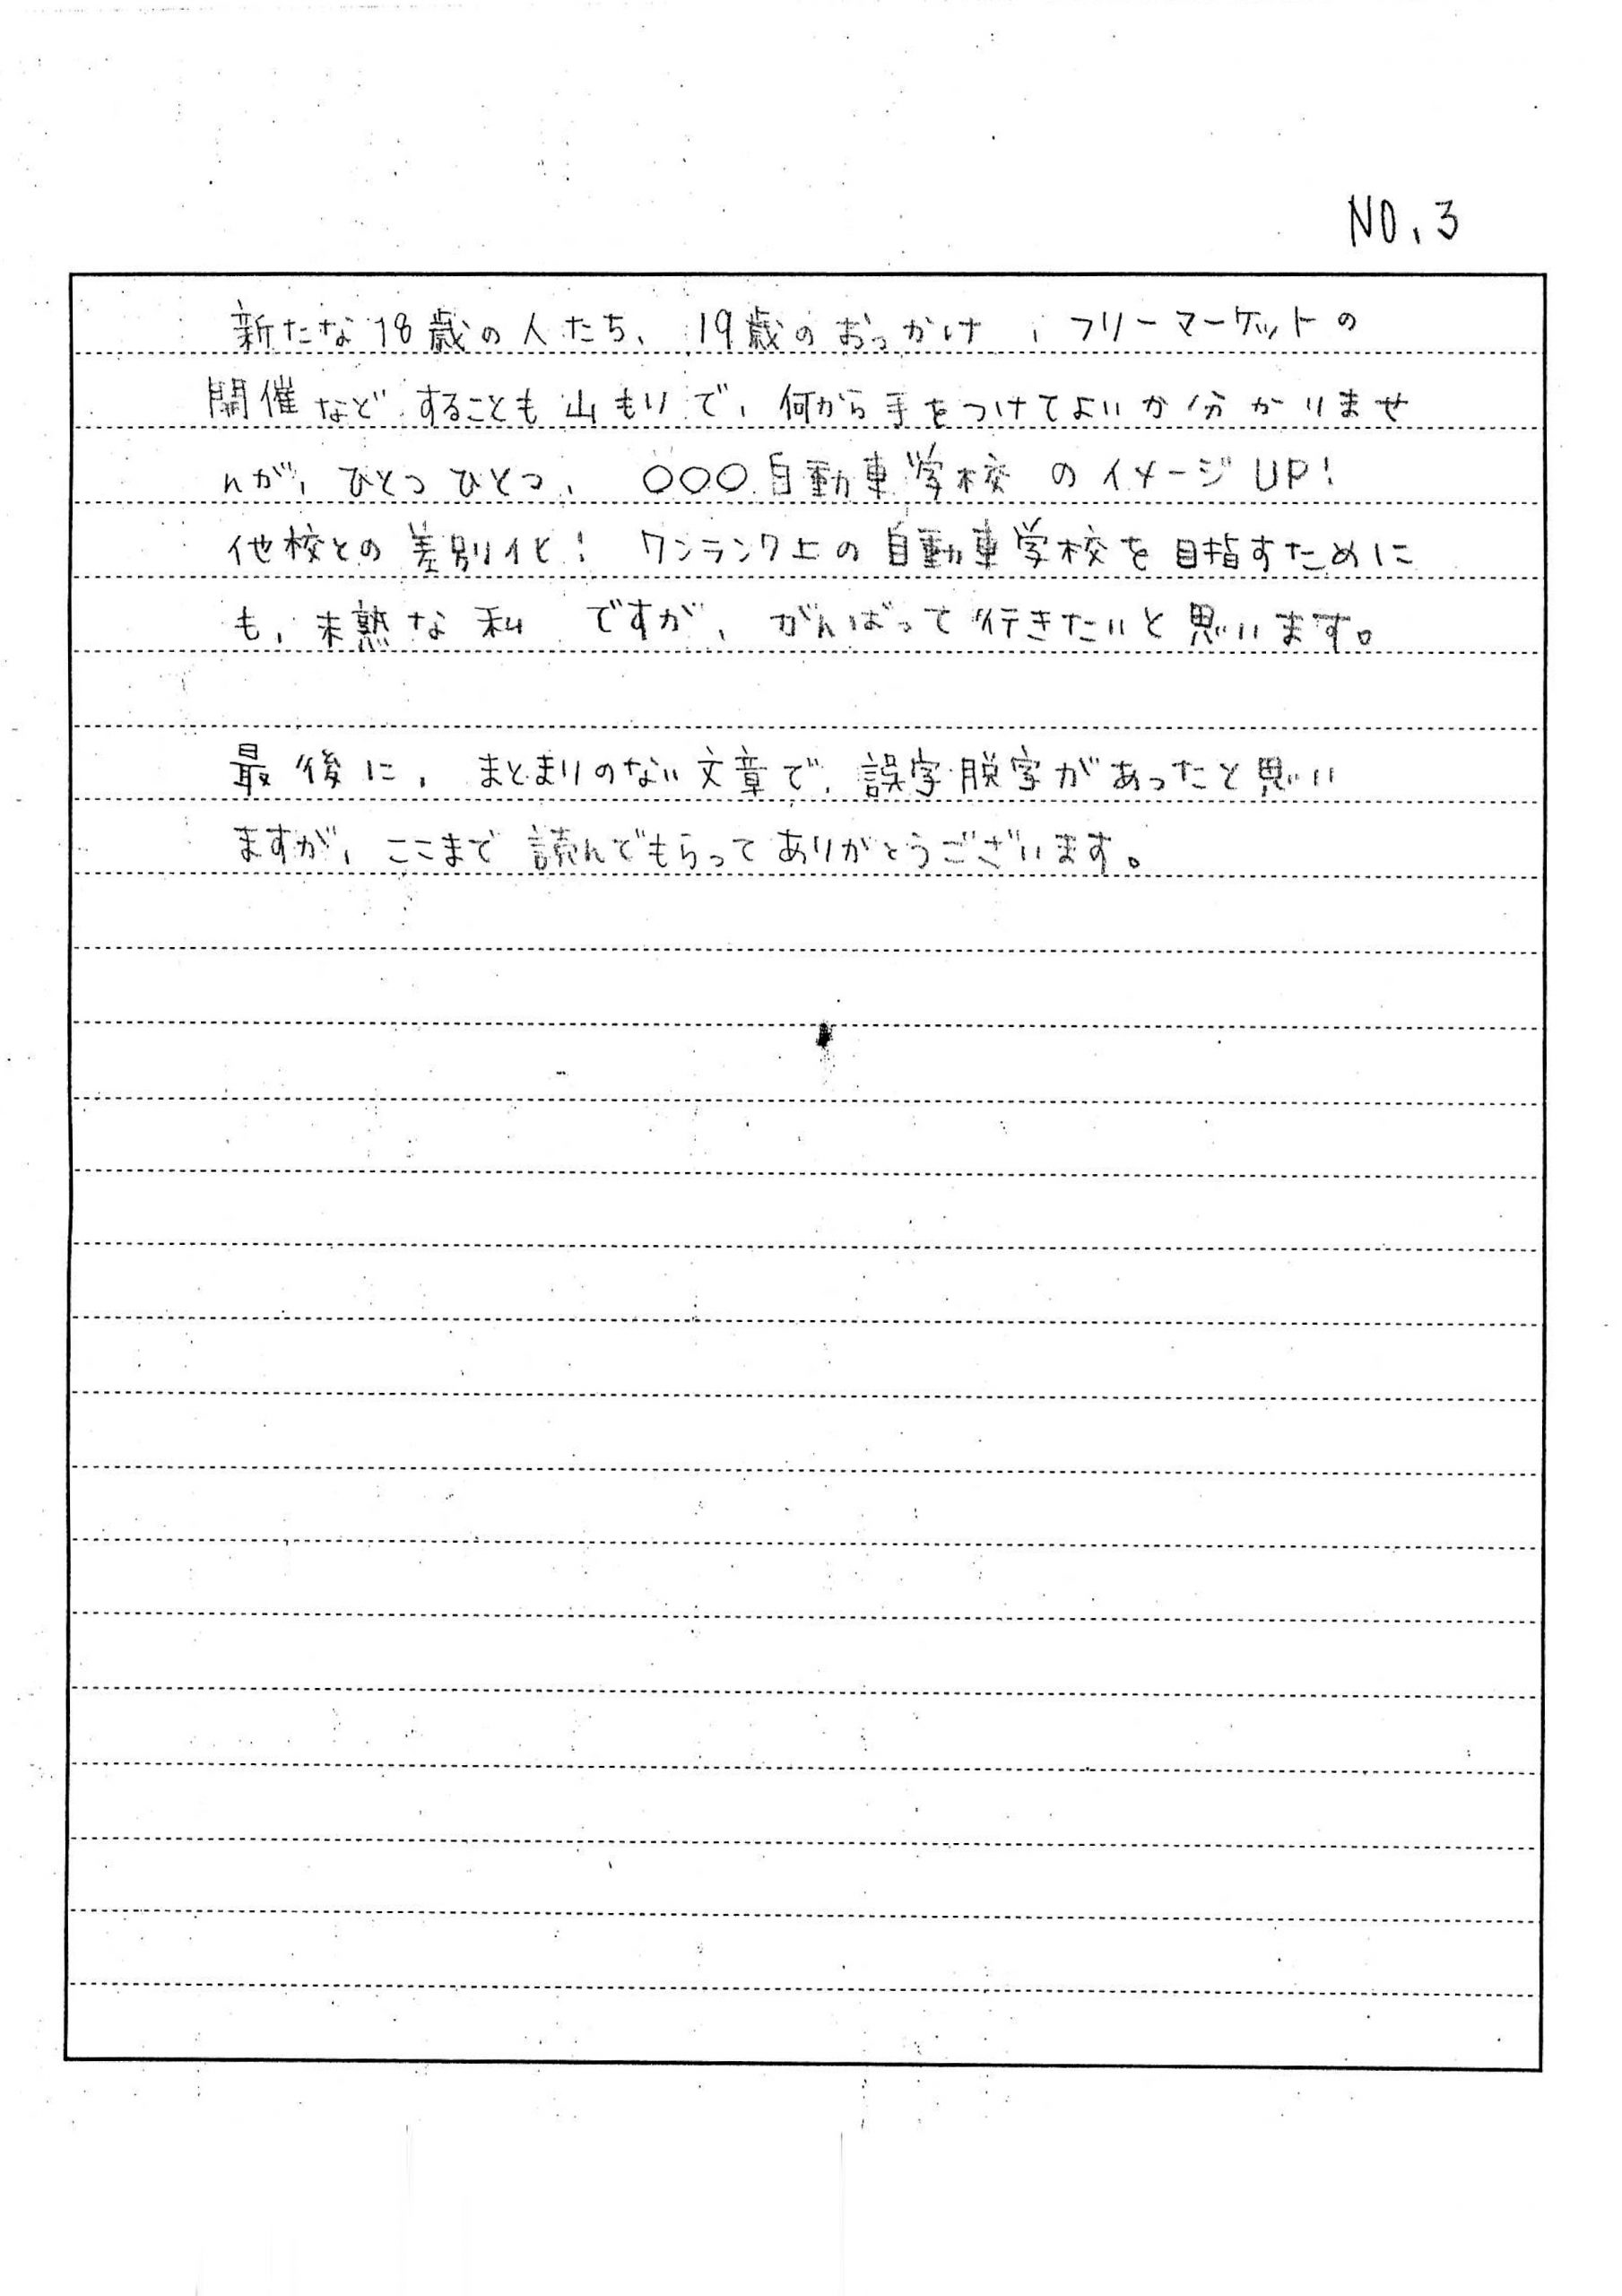 NO.3
新たな18歳の人たち、19歳のおっかけ、フリーマーケットの
開催などすることも山もりで、何から手をつけてよいか分かりませ
んが、ひとつひとつ、○○○自動車学校のイメージUP!
他校との差別化! ワンランク上の自動車学校を目指すために
も、未熟な私ですが、がんばって行きたいと思います。
最後に、まとまりのない文章で、誤字脱字があったと思い
ますが、ここまで読んでもらってありがとうございます。